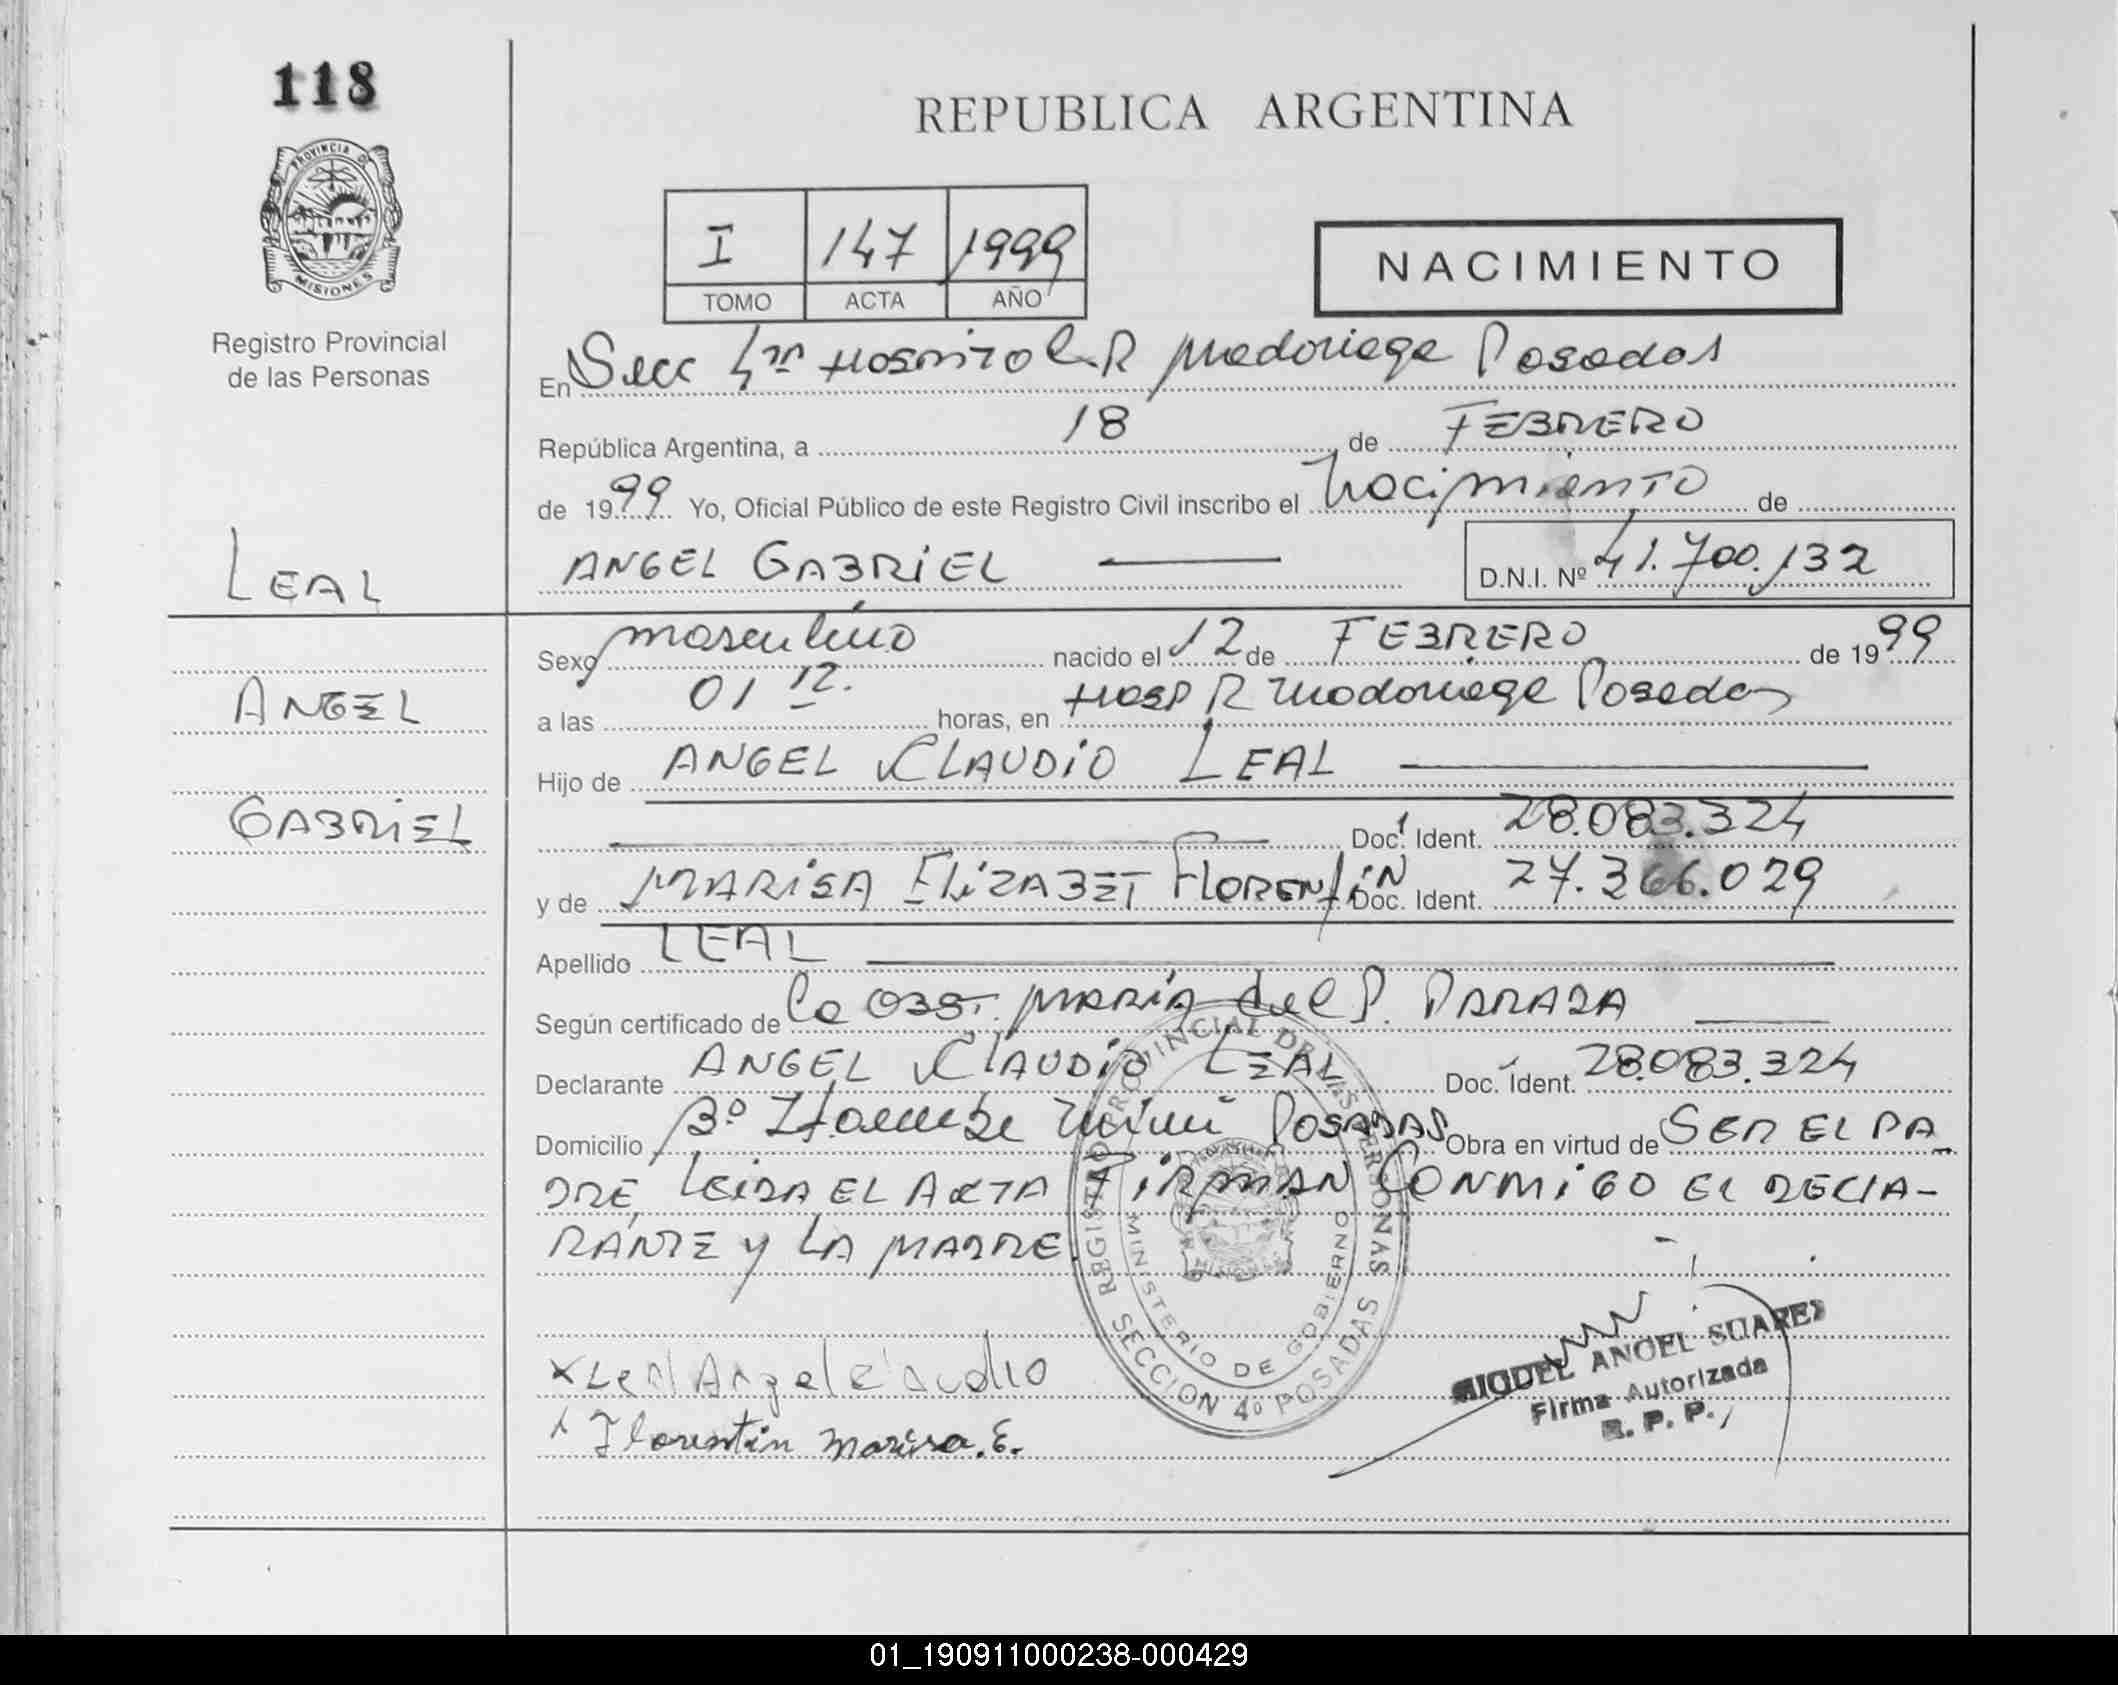 118
REPUBLICA ARGENTINA
PROVINCIA D
MISIONES
Registro Provincial
de las Personas
I 147 1999
TOMO ACTA AÑO
NACIMIENTO
En Secc 4ta Hospital R Madariaga Posadas
República Argentina, a 18 de FEBRERO
de 1999 Yo, Oficial Público de este Registro Civil inscribo el Nacimiento de
LEAL
ANGEL GABRIEL
D.N.I. Nº 41.700.132
Sexo masculino nacido el 12 de FEBRERO de 1999
ANGEL
a las 01 12. horas, en Hosp R Madariaga Posadas
Hijo de ANGEL CLAUDIO LEAL
GABRIEL
Doc. Ident. 28.083.324
y de MARISA ELIZABET FLORENTIN Doc. Ident. 27.366.029
Apellido LEAL
Según certificado de la OBST. MARIA del P. PARADA
Declarante ANGEL CLAUDIO LEAL Doc. Ident. 28.083.324
Domicilio Bº Itaembe Mini POSADAS Obra en virtud de SER EL PA
DRE, LEIDA EL ACTA FIRMAN CONMIGO EL DECLA-
RANTE Y LA MADRE.
REGISTRO PROVINCIAL DE LAS PERSONAS
MINISTERIO DE GOBIERNO
SECCION 4º POSADAS
x Leal Angel Claudio
Florentin Marisa. E.
MIGUEL ANGEL SUAREZ
Firma Autorizada
R. P. P.
01_190911000238-000429